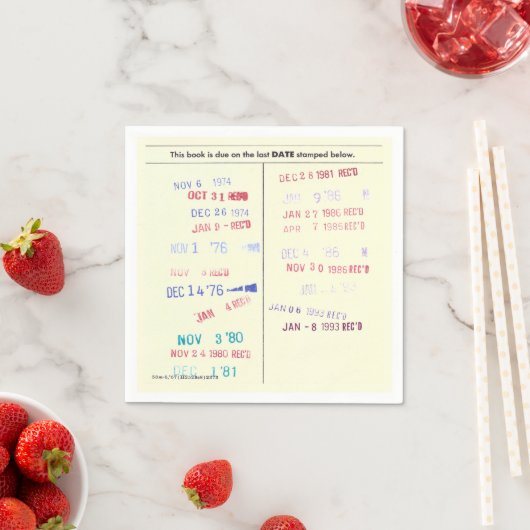 This book is due on the last DATE stamped below.
NOV 6 1974
OCT 31 REC'D
DEC 26 1974
JAN 9 - REC'D
NOV 1 '76
NOV 8 REC'D
DEC 14 '76
JAN 4 REC'D
NOV 3 '80
NOV 24 1980 REC'D
DEC 1 '81
DEC 28 1981 REC'D
JAN 9 '86
JAN 27 1986 REC'D
APR 7 1986 REC'D
DEC 4 '86
NOV 30 1986 REC'D
JAN 06 1993 REC'D
JAN - 8 1993 REC'D